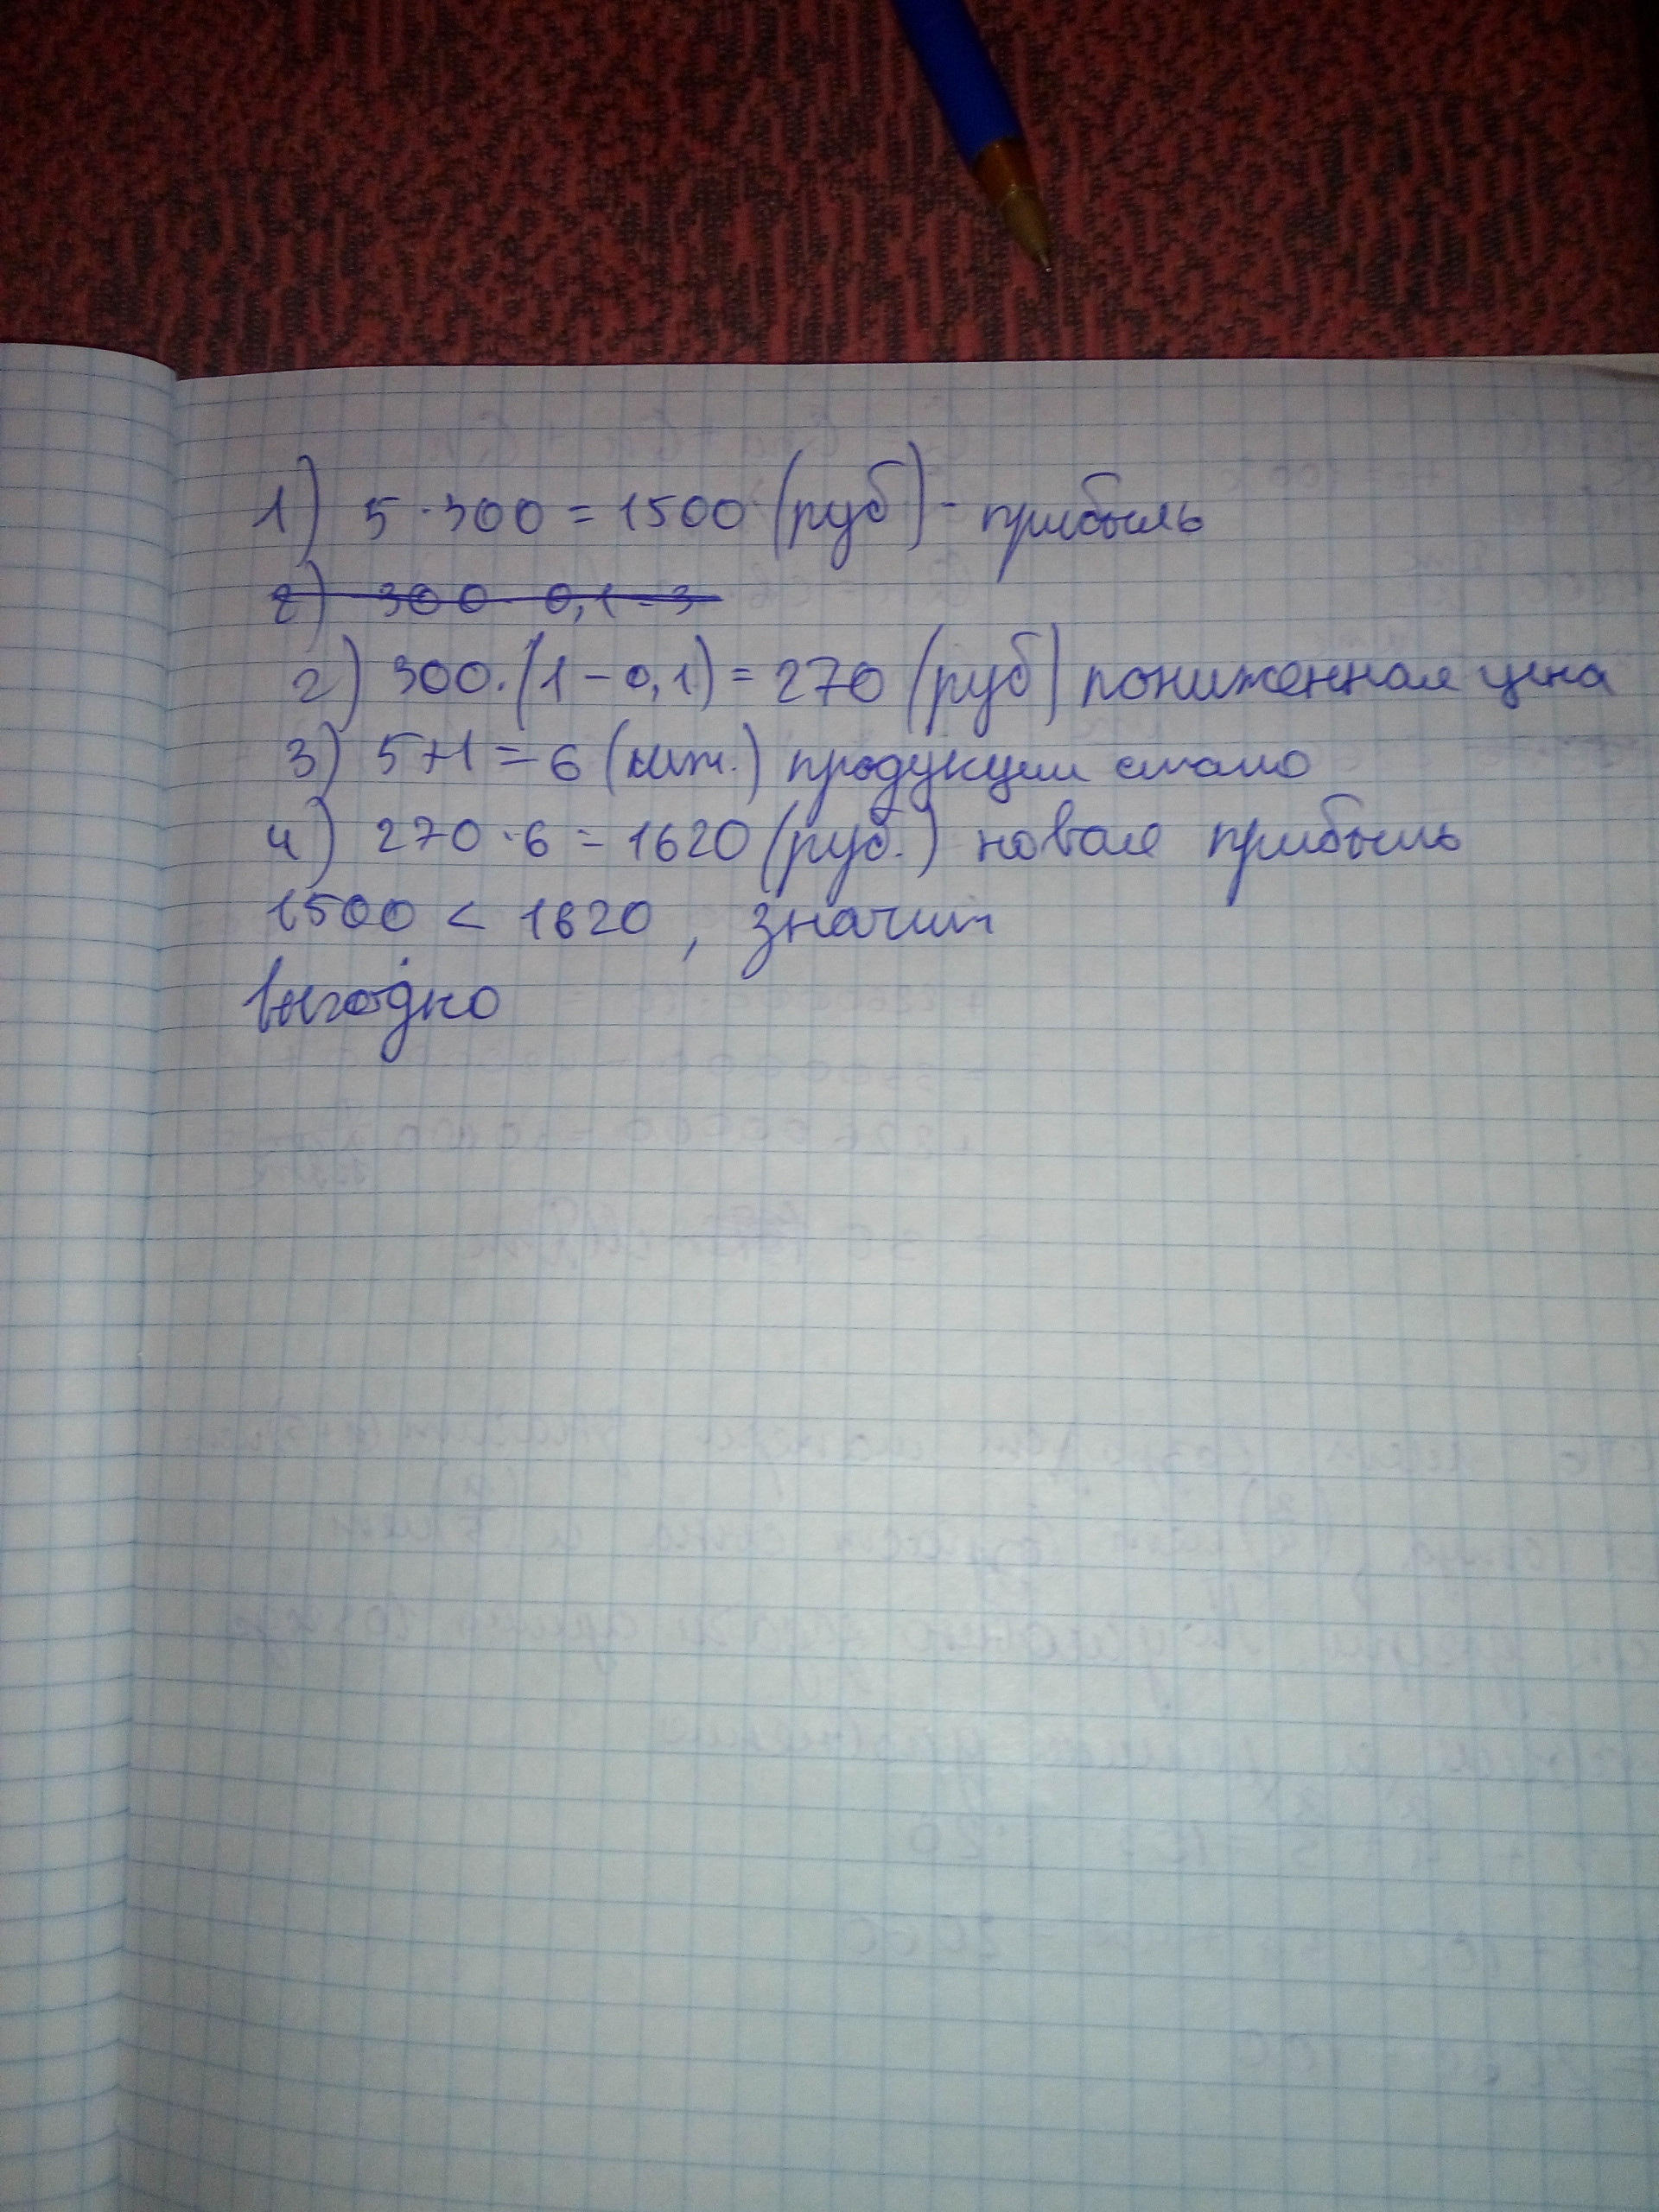 1) 5·300 = 1500 (руб) - прибыль
2) 300· 0,1 = 3
2) 300·(1-0,1) = 270 (руб) пониженная цена
3) 5+1 = 6 (шт.) продукции стало
4) 270·6 = 1620 (руб.) новая прибыль
1500 < 1620, значит
выгодно